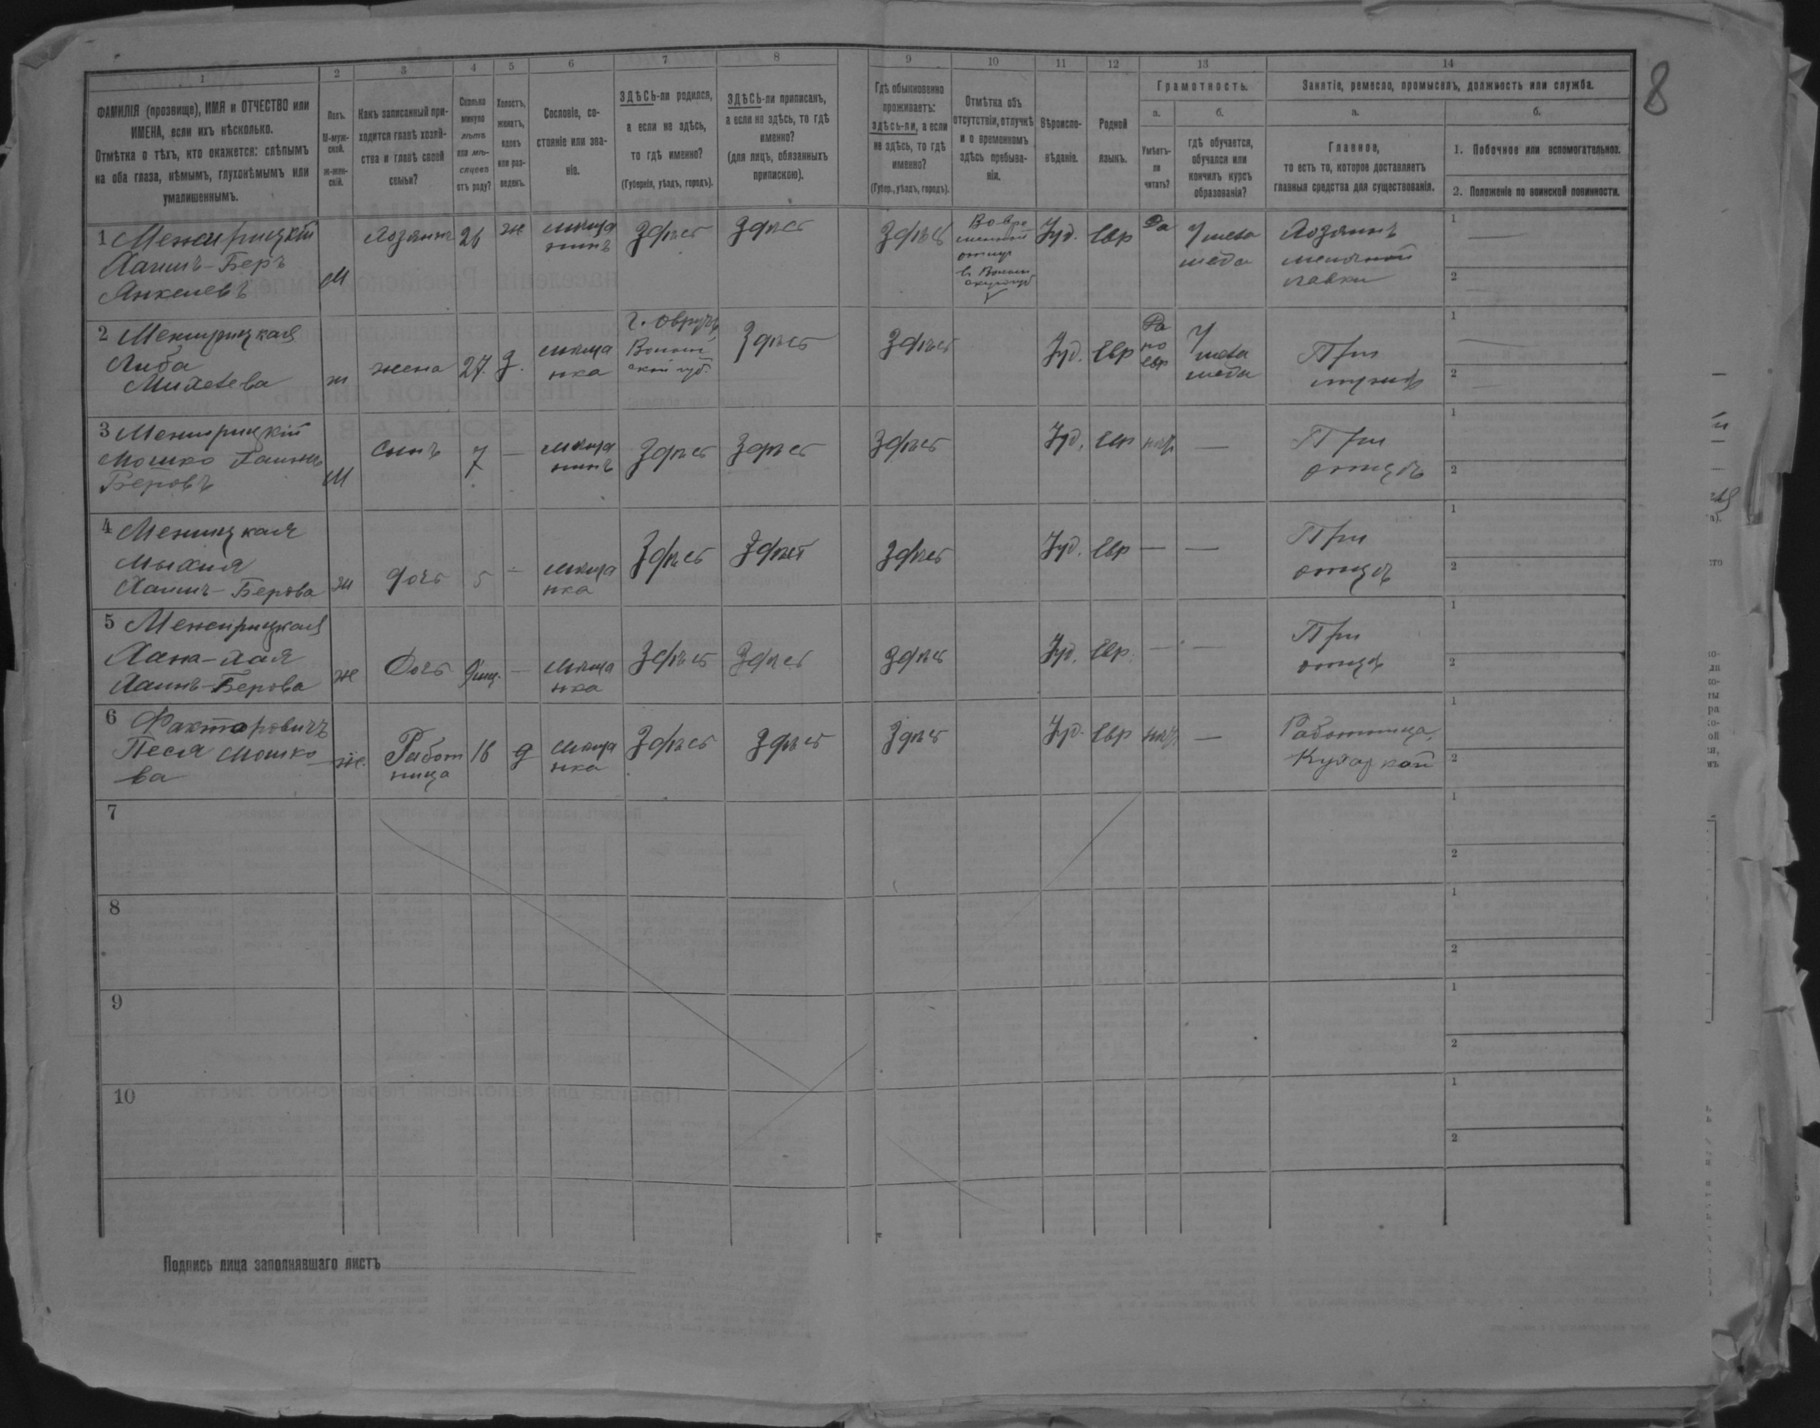 8
1 2 3 4 5 6 7 8 9 10 11 12 13 14
ФАМИЛІЯ (прозвище), ИМЯ и ОТЧЕСТВО или
ИМЕНА, если ихъ нѣсколько.
Отмѣтка о тѣхъ, кто окажется: слѣпымъ
на оба глаза, нѣмымъ, глухонѣмымъ или
умалишеннымъ.
Полъ.
М-муж-
ской.
ж-жен-
скій.
Какъ записанный при-
ходится главѣ хозяй-
ства и главѣ своей
семьи?
Сколько
минуло
лѣтъ
или мѣ-
сяцевъ
отъ роду?
Холостъ,
женатъ,
вдовъ
или раз-
веденъ.
Сословіе, со-
стояніе или зва-
ніе.
ЗДѢСЬ-ли родился,
а если не здѣсь,
то гдѣ именно?
(Губернія, уѣздъ, городъ).
ЗДѢСЬ-ли приписанъ,
а если не здѣсь, то гдѣ
именно?
(для лицъ, обязанныхъ
припискою).
Гдѣ обыкновенно
проживаетъ:
здѣсь-ли, а если
не здѣсь, то гдѣ
именно?
(Губер., уѣздъ, городъ).
Отмѣтка объ
отсутствіи, отлучкѣ
и о временномъ
здѣсь пребыва-
ніи.
Вѣроиспо-
вѣданіе.
Родной
языкъ.
Грамотность.
а.
Умѣетъ-
ли
читать?
б.
гдѣ обучается,
обучался или
кончилъ курсъ
образованія?
Занятіе, ремесло, промыселъ, должность или служба.
а.
Главное,
то есть то, которое доставляетъ
главныя средства для существованія.
б.
1. Побочное или вспомогательное.
2. Положеніе по воинской повинности.
1 Межирицкій
Хаимъ-Беръ
Янкелевъ
М
Хозяинъ
26
ж
мѣща
нинъ
Здѣсь
Здѣсь
Здѣсь
Іуд.
Евр
Да
У мела
меда
Хозяинъ
мелочной
лавки
1
2
2 Межирицкая
Либа
ж
жена
27.
з.
мѣща
нка
г. Овручъ,
Волын
ской губ.
Здѣсь
Здѣсь
Іуд.
Евр
Да
по
евр
У
мела
меда
При
мужѣ
1
2
3 Межирицкій
Мошко Хаимъ
Беровъ
М
Сынъ
7
—
мѣща
нинъ
Здѣсь
Здѣсь
Здѣсь
Іуд.
Евр
нѣт
—
При
отцѣ
1
2
4
Хаимъ-Берова
ж
дочь
5
—
мѣща
нка
Здѣсь
Здѣсь
Здѣсь
Іуд.
Евр
—
—
При
отцѣ
1
2
5 Межирицкая
Хана-Хая
Хаимъ-Берова
ж
Дочь
9 мѣс.
—
мѣща
нка
Здѣсь
Здѣсь
Здѣсь
Іуд.
Евр.
—
—
При
отцѣ
1
2
6 Факторовичъ
Песя Мошко
ва
ж.
Работ
ница
18
д
мѣща
нка
Здѣсь
Здѣсь
Здѣсь
Іуд.
Евр
нѣт
—
Работница,
Кухаркой
1
2
7
1
2
8
1
2
9
1
2
10
1
2
Подпись лица заполнявшаго листъ